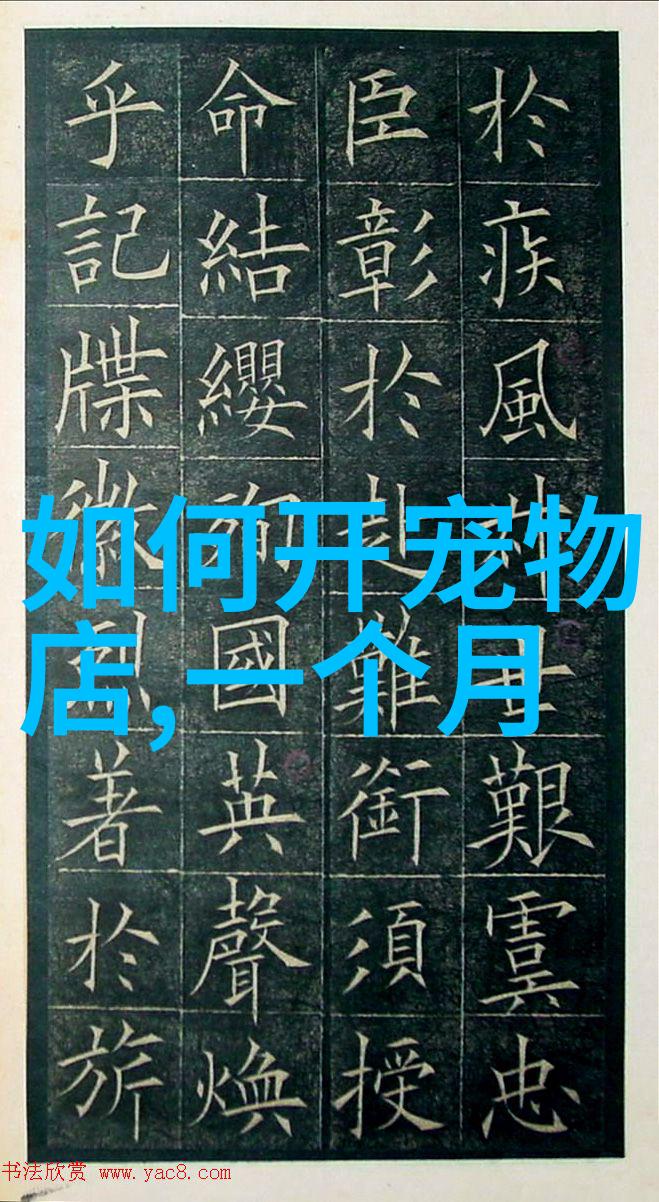 於疾風叔世艱虞忠
臣彰於赴難銜須授
命結纓殉國英聲煥
乎記牒徽烈著於旂
如何开宠物
店,一个月
书法欣赏 www.yac8.com